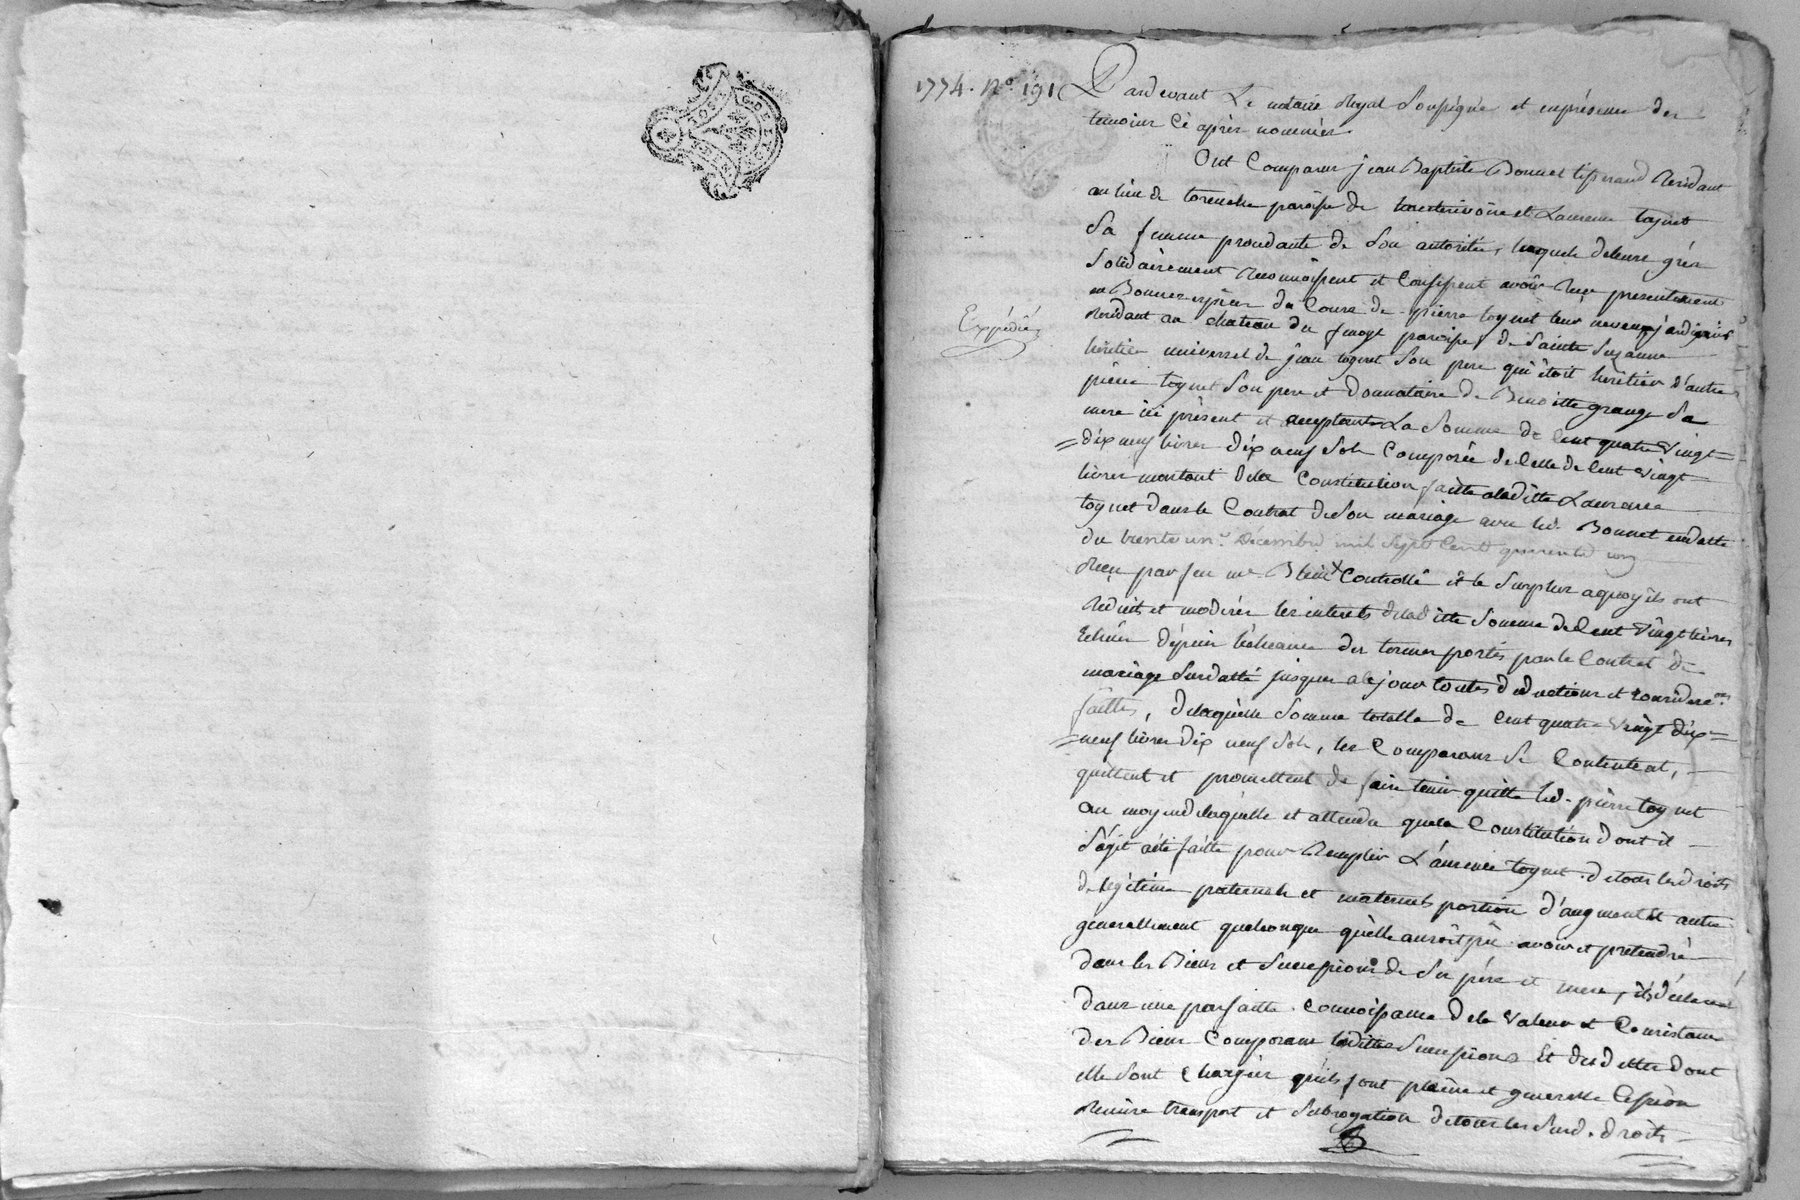 1774. No. 191
Pardevant Le notaire Royal Soussigné et en présence des
temoins Ci après nommés
Ont Comparus jean Baptiste Bonnet tisserand Residant
au lieu de paroisse de et Laurence toynet
Sa femme procedante de Son autorité, lesquels de leurs grés
Solidairement Reconnoissent et Confessent avoir Reçu presentement
en Bonnes espèces de Cours de pierre toynet leur neveu jardinier
Residant au chateau du paroisse de Sainte Suzanne
Expédiée
héritier universel de jean toynet Son pere qui étoit héritier d'autre
pierre toynet Son pere et donnataire de Benoitte grange Sa
mere ici présent et acceptant La Somme de Cent quatre Vingt
dix neuf livres dix neuf Sols Composée de Celle de Cent Vingt
livres montant de la Constitution faitte a laditte Laurence
toynet dans le Contrat de Son mariage avec led. Bonnet en datte
du trente un Décembre mil Sept Cent quarente un
Reçu par feu me Controllé et le Surplus a quoy ils ont
Reduits et modérés les interets de laditte Somme de Cent Vingt livres
Echus depuis l'echeance des termes portés par le Contrat de
mariage Surdatté jusques a ce jour toutes deductions et considerons
faittes, de laquelle Somme totalle de Cent quatre Vingt dix
neuf livres dix neuf Sols, les Comparans Se Contentent,
quittent et promettent de faire tenir quitte led. pierre toynet
au moyen de laquelle et attendu que la Constitution dont il
S'agit a été faitte pour Remplir Laurence toynet de tous les droits
de légitime paternels et maternels portion d'augment et autres
generallement quelconque qu'elle auroit pû avoir et pretendre
dans les Biens et Successions de Ses père et mere, ils déclarent
dans une parfaitte Connoissance de la Valeur et Consistance
des Biens Composant lesdittes Successions Et des dettes dont
elle Sont Chargées qu'ils font pleine et generalle Cession
Remise transport et Subrogation de tous les Susd. droits